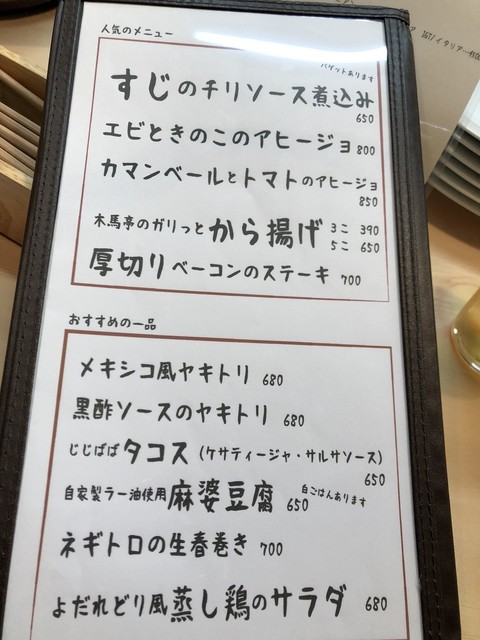 人気のメニュー
バゲットあります
すじのチリソース煮込み
650
エビときのこのアヒージョ 800
カマンベールとトマトのアヒージョ
850
木馬亭のガリっとから揚げ 3コ 390
5コ 650
厚切りベーコンのステーキ 700
おすすめの一品
メキシコ風ヤキトリ 680
黒酢ソースのヤキトリ 680
じじばばタコス (ケサティージャ・サルサソース)
650
自家製ラー油使用麻婆豆腐 650 白ごはんあります
ネギトロの生春巻き 700
よだれどり風蒸し鶏のサラダ 680